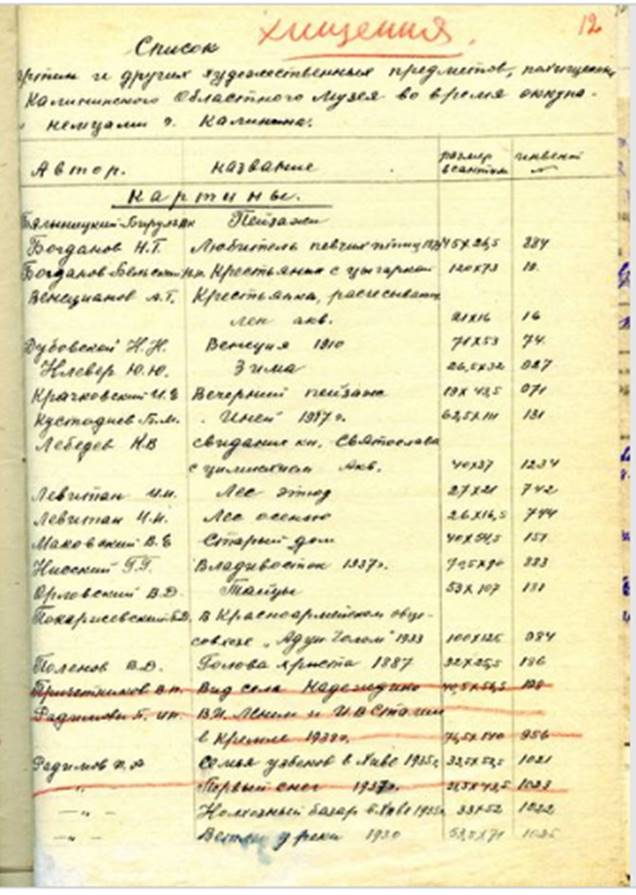 хищения.
12
Список
картин и других художественных предметов, похищенных
Калининского Областного Музея во время оккупа-
немцами г. Калинина.
Автор. название размер в сантим инвент №
Картины.
Бялыницкий-Бируля Пейзаж
Богданов Н.Г. Любитель певчих птиц 45х26,5 884
Богданов-Бельский Н.П. Крестьянин с цыгаркой 120х73 10.
Венецианов А.Г. Крестьянка, расчесывает
лен акв. 21х16 16
Дубовской Н.Н. Венеция 1910 71х53 74.
Клевер Ю.Ю. Зима 26,5х32 027
Крачковский И.Е Вечерний пейзаж 19х43,5 071
Кустодиев Б.М. Иней 1917г. 62,5х111 131
Лебедев К.В свидание кн. Святослава
с цимисхием Акв. 40х37 1234
Левитан И.И. Лес этюд 27х21 742
Левитан И.И. Лес осенью 26х16,5 744
Маковский В.Е Старый дом 40х54,5 151
Нисский Г.Г. Владивосток 1937г. 883
Орловский В.Д. 53х107 181
в Красноармейском овце-
совхозе 1933 100х125 984
Поленов В.Д. Голова Христа 1887 32х25,5 186
Вид села Надеждино 198
В.И. Ленин и И.В Сталин
в Кремле 1938г. 956
Радимов П.А Семья узбеков в Хиве 1935г. 1021
— " — Первый снег 1937г. 1023
— " — Колхозный базар в Хиве 1935г. 33х52 1022
— " — Ветлы у реки 1930 53,5х71 1025